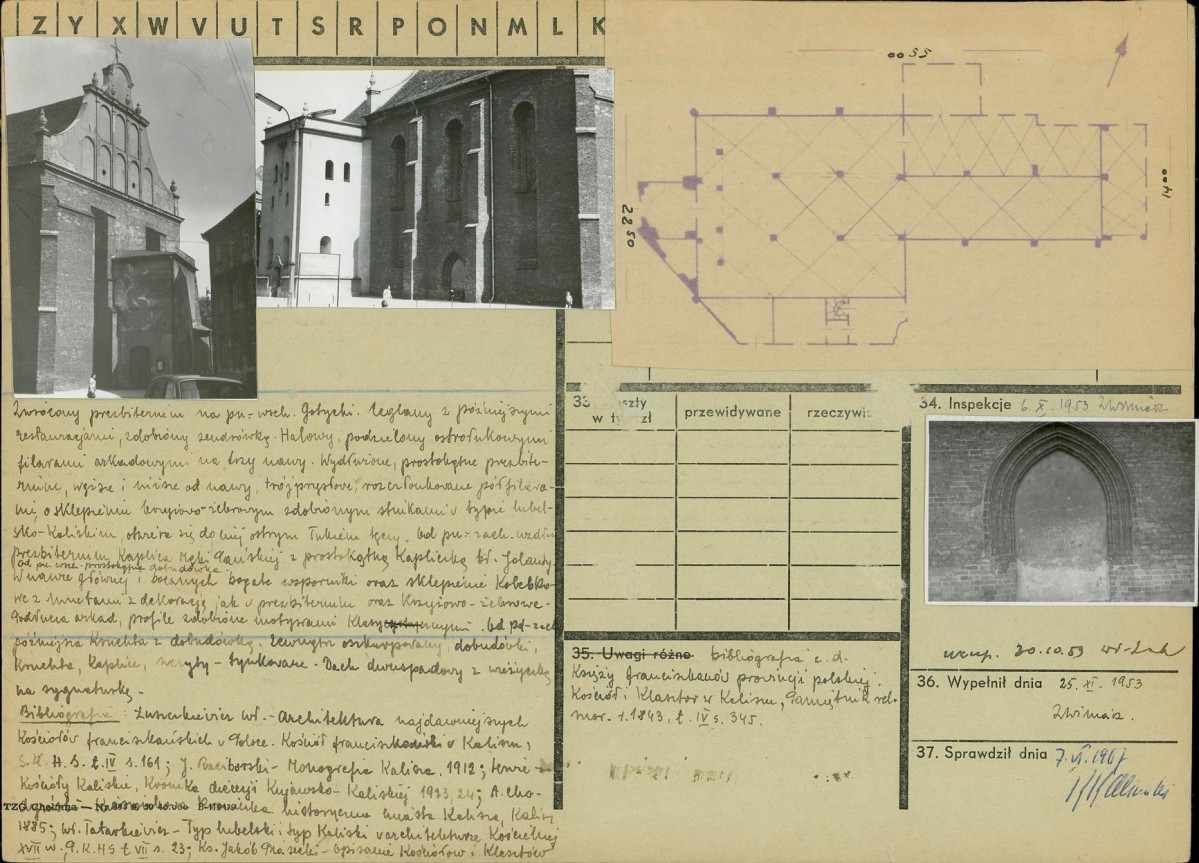 Z Y X W V U T S R P O N M L K
55 00
22 50
14 00
Zwrócony prezbiterium na pn.-wsch. Gotycki. Ceglany z późniejszymi
restauracjami, zdobiony zendrówką. Halowy, podzielony ostrołukowymi
filarami arkadowymi na trzy nawy. Wydłużone, prostokątne prezbite-
rium, węższe i niższe od nawy, trójprzęsłowe, rozczłonkowane półfilara-
mi, o sklepieniu krzyżowo-żebrowym zdobionym stiukami w typie lubel-
sko-Kaliskim, otwiera się do niej ostrym łukiem tęczy. Od pn.-zach. wzdłuż
prezbiterium Kaplica Męki Pańskiej z prostokątną Kapliczką bł. Jolanty.
od pn. wsch. prostokątna dobudówka.
W nawie głównej i bocznych bogate wsporniki oraz sklepienie Kolebko-
we z lunetami z dekoracją jak w prezbiterium oraz Krzyżowo-żebrowe.
Podłucza arkad, profile zdobione motywami klasycznymi. Od pd-zach
późniejsza Kruchta z dobudówką. Zewnątrz oszkarpowany, dobudówki,
Kruchta, Kaplice, szczyty - tynkowane. Dach dwuspadowy z wieżyczką
na sygnaturkę.
Bibliografia: Łuszczkiewicz Wł. - Architektura najdawniejszych
Kościołów franciszkańskich w Polsce. Kościół franciszkański w Kaliszu,
S.K.H.S. t. IV s. 161; J. Raciborski - Monografia Kalisza, 1912; tenże -
Kościoły Kaliskie, Kronika diecezji Kujawsko-Kaliskiej 1923, 24; A. Cho-
historyczna miasta Kalisza, Kalisz
1885; Wł. Tatarkiewicz - Typ lubelski i typ Kaliski w architekturze Kościelnej
XVII w. P.K.H.S t. VII s. 23; Ks. Jakób Prasecki - Opisanie Kościołów i Klasztorów
33. szty
w ty zł
przewidywane
rzeczywis
34. Inspekcje 6. X. 1953
35. Uwagi różne bibliografia c.d.
Księży franciszkanów prowincji polskiej.
Kościół i Klasztor w Kaliszu, Pamiętnik rel.
mor. r. 1843, t. IV s. 345.
30.10.53
36. Wypełnił dnia 25. XI. 1953
37. Sprawdził dnia